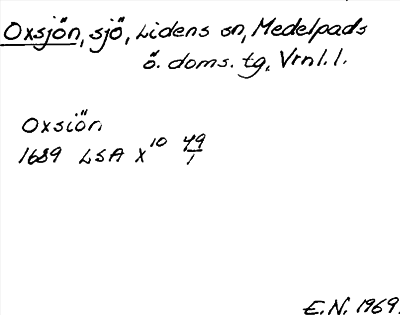 Oxsjön, sjö, Lidens sn, Medelpads
ö. doms. tg, Vrnl. l.
Oxsiön
1689 LSA X¹⁰ 49/1
E.N. 1969.